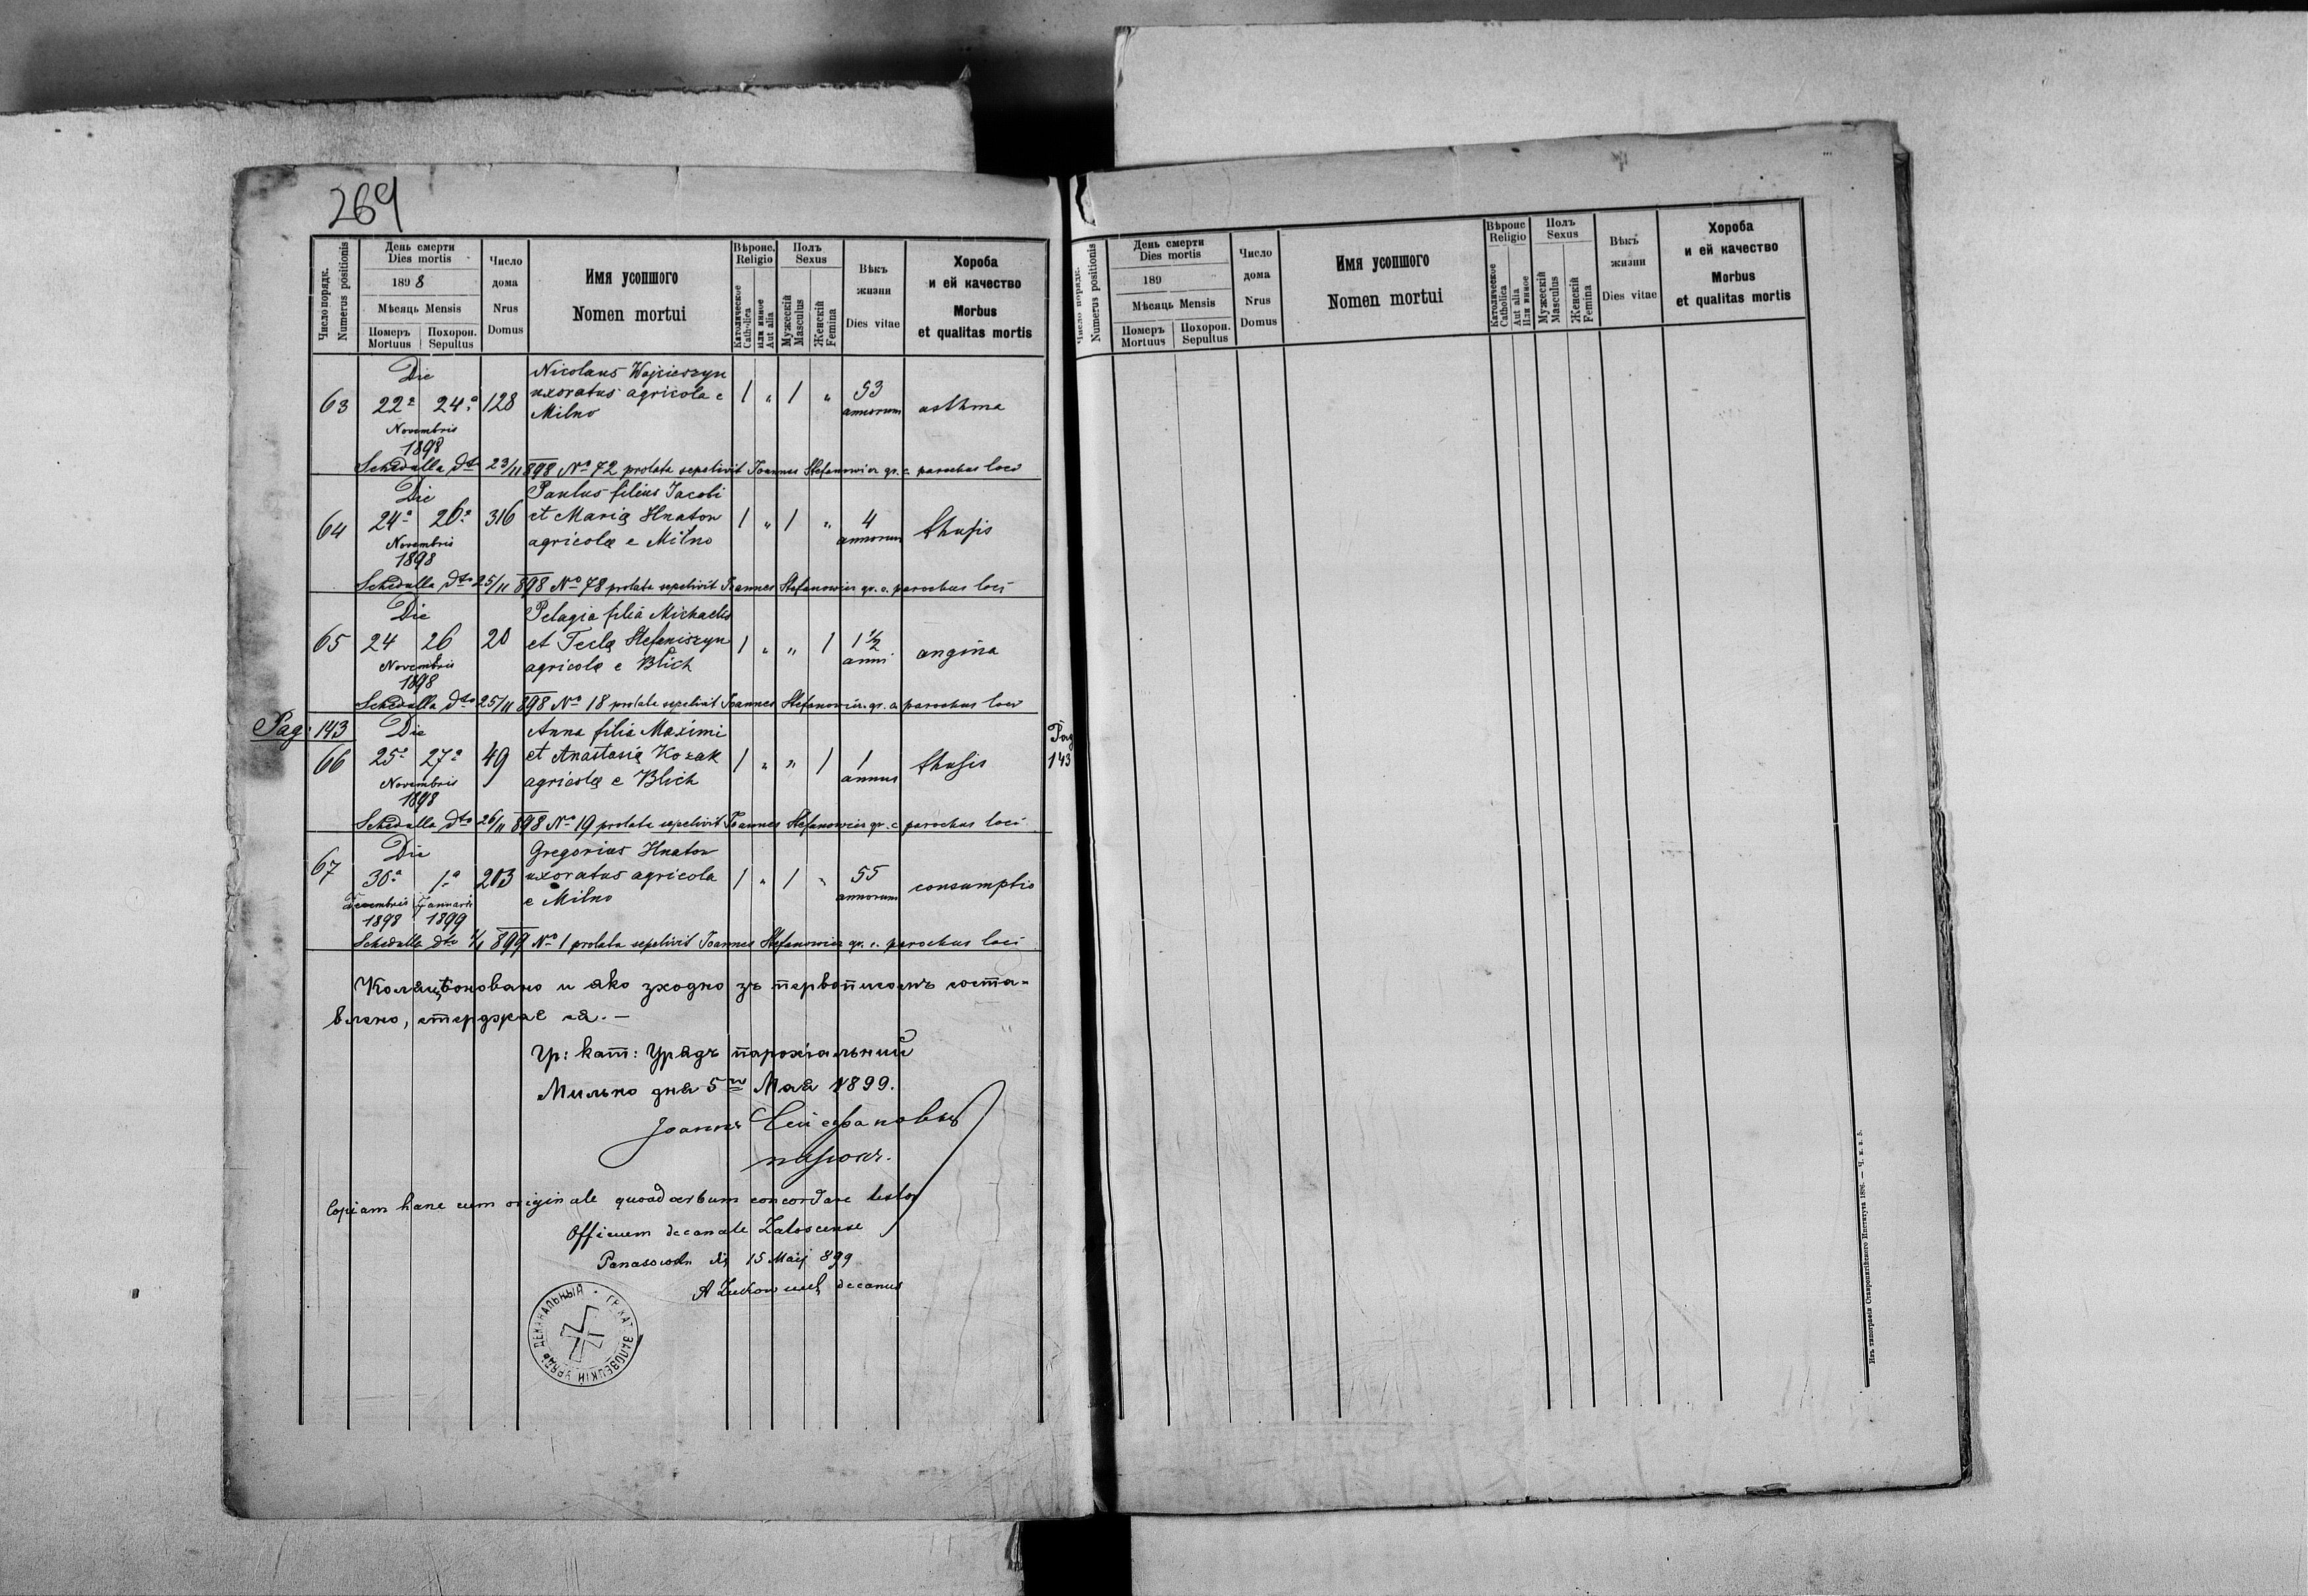 269
Число порядк. Numerus positionis
День смерти Dies mortis
1898
Мѣсяць Mensis
Померъ Mortuus
Похорон. Sepultus
Число дома Nrus Domus
Имя усопшого
Nomen mortui
Вѣроис. Religio
Католическое Catholica
Или инное Aut alia
Полъ Sexus
Мужескій Masculus
Женскій Femina
Вѣкъ жизни Dies vitae
Хороба и ей качество
Morbus et qualitas mortis
Die Nicolaus Wojcieszyn
63 22ª 24ª 128 uxoratus agricola e 1 " 1 " 53 annorum asthma
Milno
Novembris
1898
Schedulla dto 23/11 898 No 72 prolata sepelivit Joannes Stefanowicz gr. c. parochus loci
Die Paulus filius Jacobi
64 24ª 26ª 316 et Mariæ Hnatow 1 " 1 " 4 annorum thusis
Novembris agricolæ e Milno
1898
Schedulla dto 25/11 898 No 78 prolata sepelivit Joannes Stefanowicz gr. c. parochus loci
Die Pelagia filia Michaelis
65 24 26 20 et Teclæ Stefaniszyn 1 " " 1 1½ anni angina
Novembris agricolæ e Blich
1898
Schedulla dto 25/11 898 No 18 prolata sepelivit Joannes Stefanowicz gr. c. parochus loci
Pag: 143 Die Anna filia Maximi Pag 143
66 25ª 27ª 49 et Anastasiæ Kozak 1 " " 1 1 annus thusis
Novembris agricolæ e Blich
1898
Schedulla dto 26/11 898 No 19 prolata sepelivit Joannes Stefanowicz gr. c. parochus loci
Die Gregorius Hnatow
67 30ª 1ª 203 uxoratus agricola 1 " 1 " 55 annorum consumptio
Decembris Januarii e Milno
1898 1899
Schedulla dto 1/1 899 No 1 prolata sepelivit Joannes Stefanowicz gr. c. parochus loci
Коляціоновано и яко зходно зъ первописомъ соста-
влено, стверджае ся. —
Гр: кат: Урядъ парохіальный
Мильно дня 5го Мая 1899.
Іоаннъ Стефановичъ
парохъ.
Copiam hanc cum originale quoad verbum concordare testor
Officium decanale Zaloscense
Panasowka die 15 Maij 899
decanus
ГР. КАТ. ЗАЛОЗЕЦКІЙ УРЯДЪ ДЕКАНАЛЬНЫЙ
Число порядк. Numerus positionis
День смерти Dies mortis
189
Мѣсяць Mensis
Померъ Mortuus
Похорон. Sepultus
Число дома Nrus Domus
Имя усопшого
Nomen mortui
Вѣроис Religio
Католическое Catholica
Aut alia Или инное
Полъ Sexus
Мужескій Masculus
Женскій Femina
Вѣкъ жизни Dies vitae
Хороба и ей качество
Morbus et qualitas mortis
Изъ типографіи Ставропигійского Института